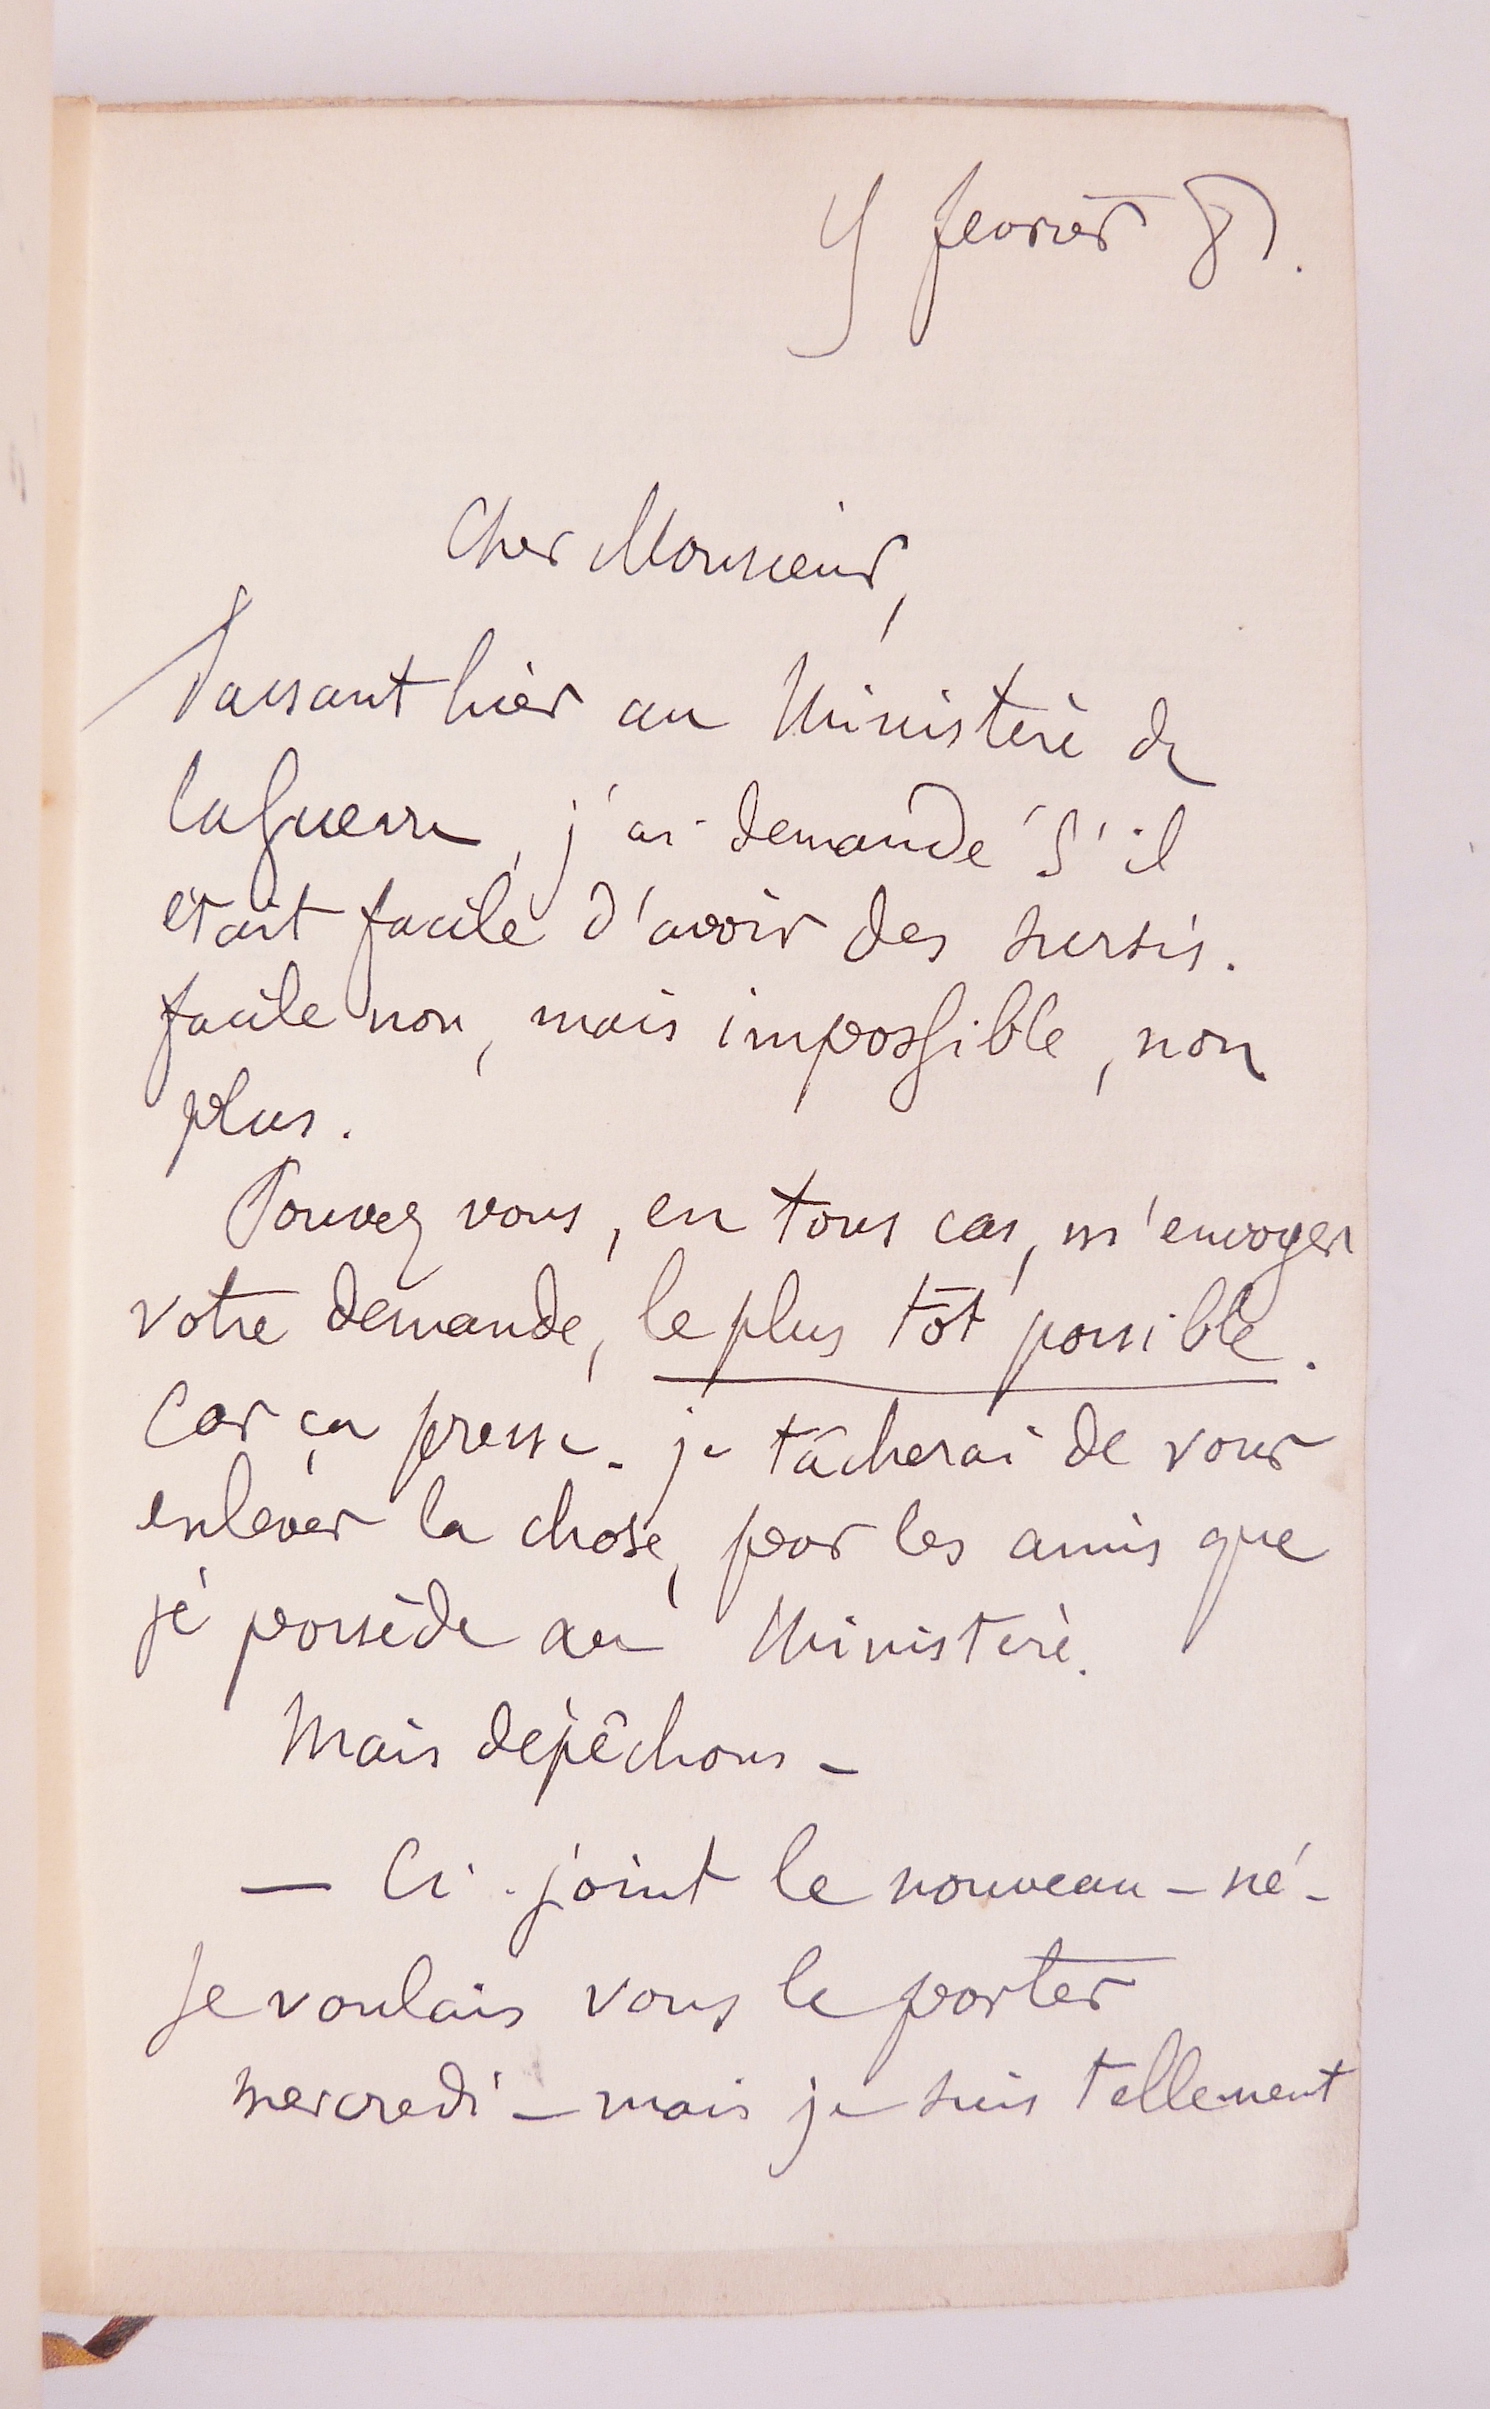 9 fevrier 87.
Cher Monsieur,
Passant hier au Ministère de
la guerre, j'ai demandé s'il
était facile d'avoir des sursis.
facile non, mais impossible, non
plus.
Pouvez vous, en tous cas, m'envoyer
votre demande, le plus tôt possible.
Car ça presse. je tâcherai de vous
enlever la chose, par les amis que
je possède au Ministère.
Mais dépêchons -
— Ci-joint le nouveau-né -
Je voulais vous le porter
mercredi - mais je suis tellement